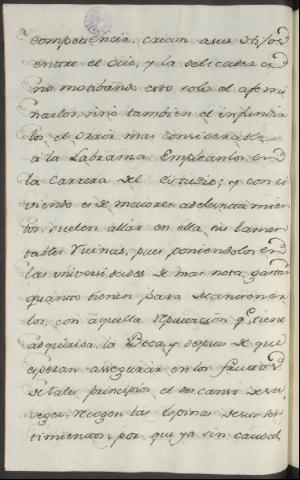 competencia, crian a sus Hijos
entre el Ocio, y la delicadeza
no motibando esto solo el afemi
narlos, sino tambien el infundir
los el orror mas considerable
a la Labranza: Emplean los en
la Carrera del estudio; y con
viniendo es de maiores adelantamien
tos, suelen allar en ella sus lamen
tables Ruinas, pues poniendolos en
las universidades de mas nota, gastan
quanto tienen para mantener
los, con aquella reputacion qe. tiene
adquirida la Beca, y despues de que
esperan assegurar en los frutos
de tales principios el descanso de su
vegez, recogen las espinas de sus sen
timientos, por que ya sin caudal